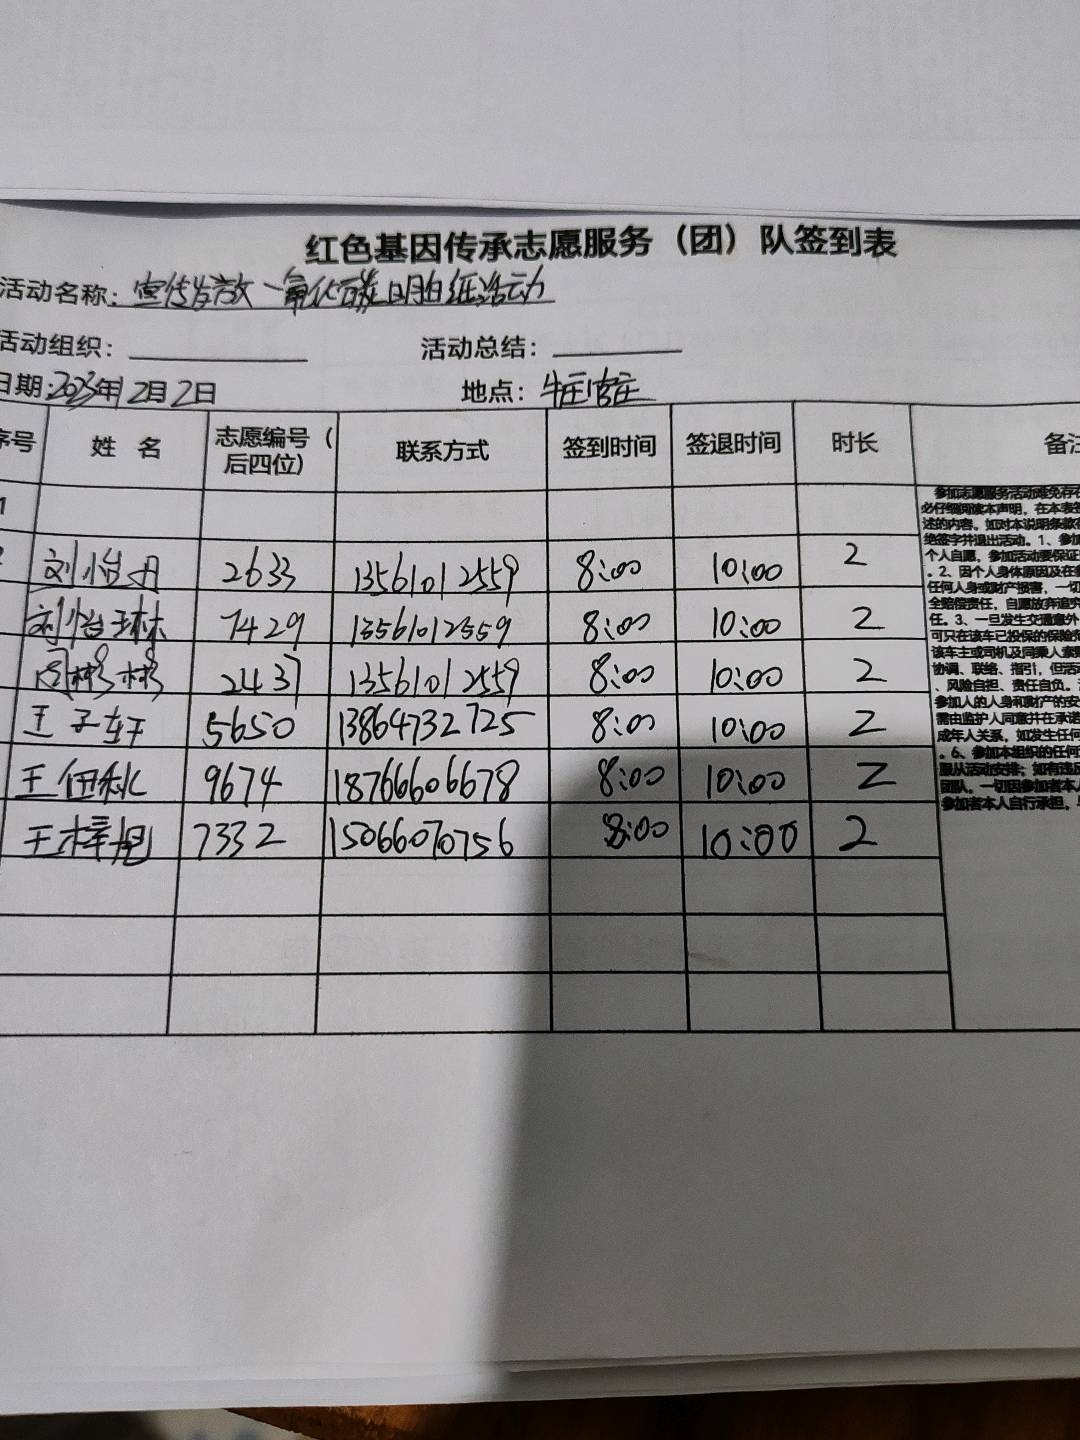 红色基因传承志愿服务（团）队签到表
活动名称：宣传发放一氧化碳明白纸活动
活动组织：
活动总结：
日期：2023年12月2日
地点：牛庄官庄
序号 姓 名 志愿编号（后四位） 联系方式 签到时间 签退时间 时长 备注
1
2 刘怡丹 2633 13561012559 8:00 10:00 2
刘怡琳 7429 13561012559 8:00 10:00 2
周彬彬 2437 13561012559 8:00 10:00 2
王子轩 5650 13864732725 8:00 10:00 2
王伊秋 9674 18766606678 8:00 10:00 2
王梓旭 7332 15066070756 8:00 10:00 2
参加志愿服务活动难免存在
必仔细阅读本声明，在本表签
述的内容。如对本说明条款
绝签字并退出活动。1、参加
个人自愿，参加活动要保证
。2、因个人身体原因及在
任何人身或财产损害，一切
全赔偿责任，自愿放弃追究
任。3、一旦发生交通意外
可只在该车已投保的保险范
该车主或司机及同乘人索赔
协调、联络、指引，但活
、风险自担、责任自负。
参加人的人身和财产的安
需由监护人同意并在承诺
成年人关系，如发生任何
。6、参加本组织的任何
服从活动安排；如有违反
团队。一切因参加者本人
参加者本人自行承担，